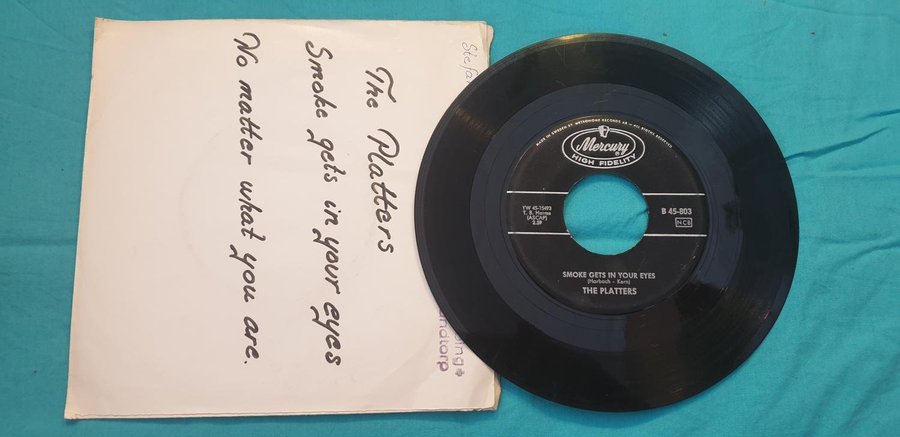 The Platters
Smoke gets in your eyes
No matter what you are.
Stefa
ping
ndtorp
MADE IN SWEDEN BY METRONOME RECORDS AB - ALL RIGHTS RESERVED
Mercury
HIGH FIDELITY
YW 45-15493
T. B. Harms
(ASCAP)
2.39
B 45-803
NCB
SMOKE GETS IN YOUR EYES
(Harbach - Kern)
THE PLATTERS